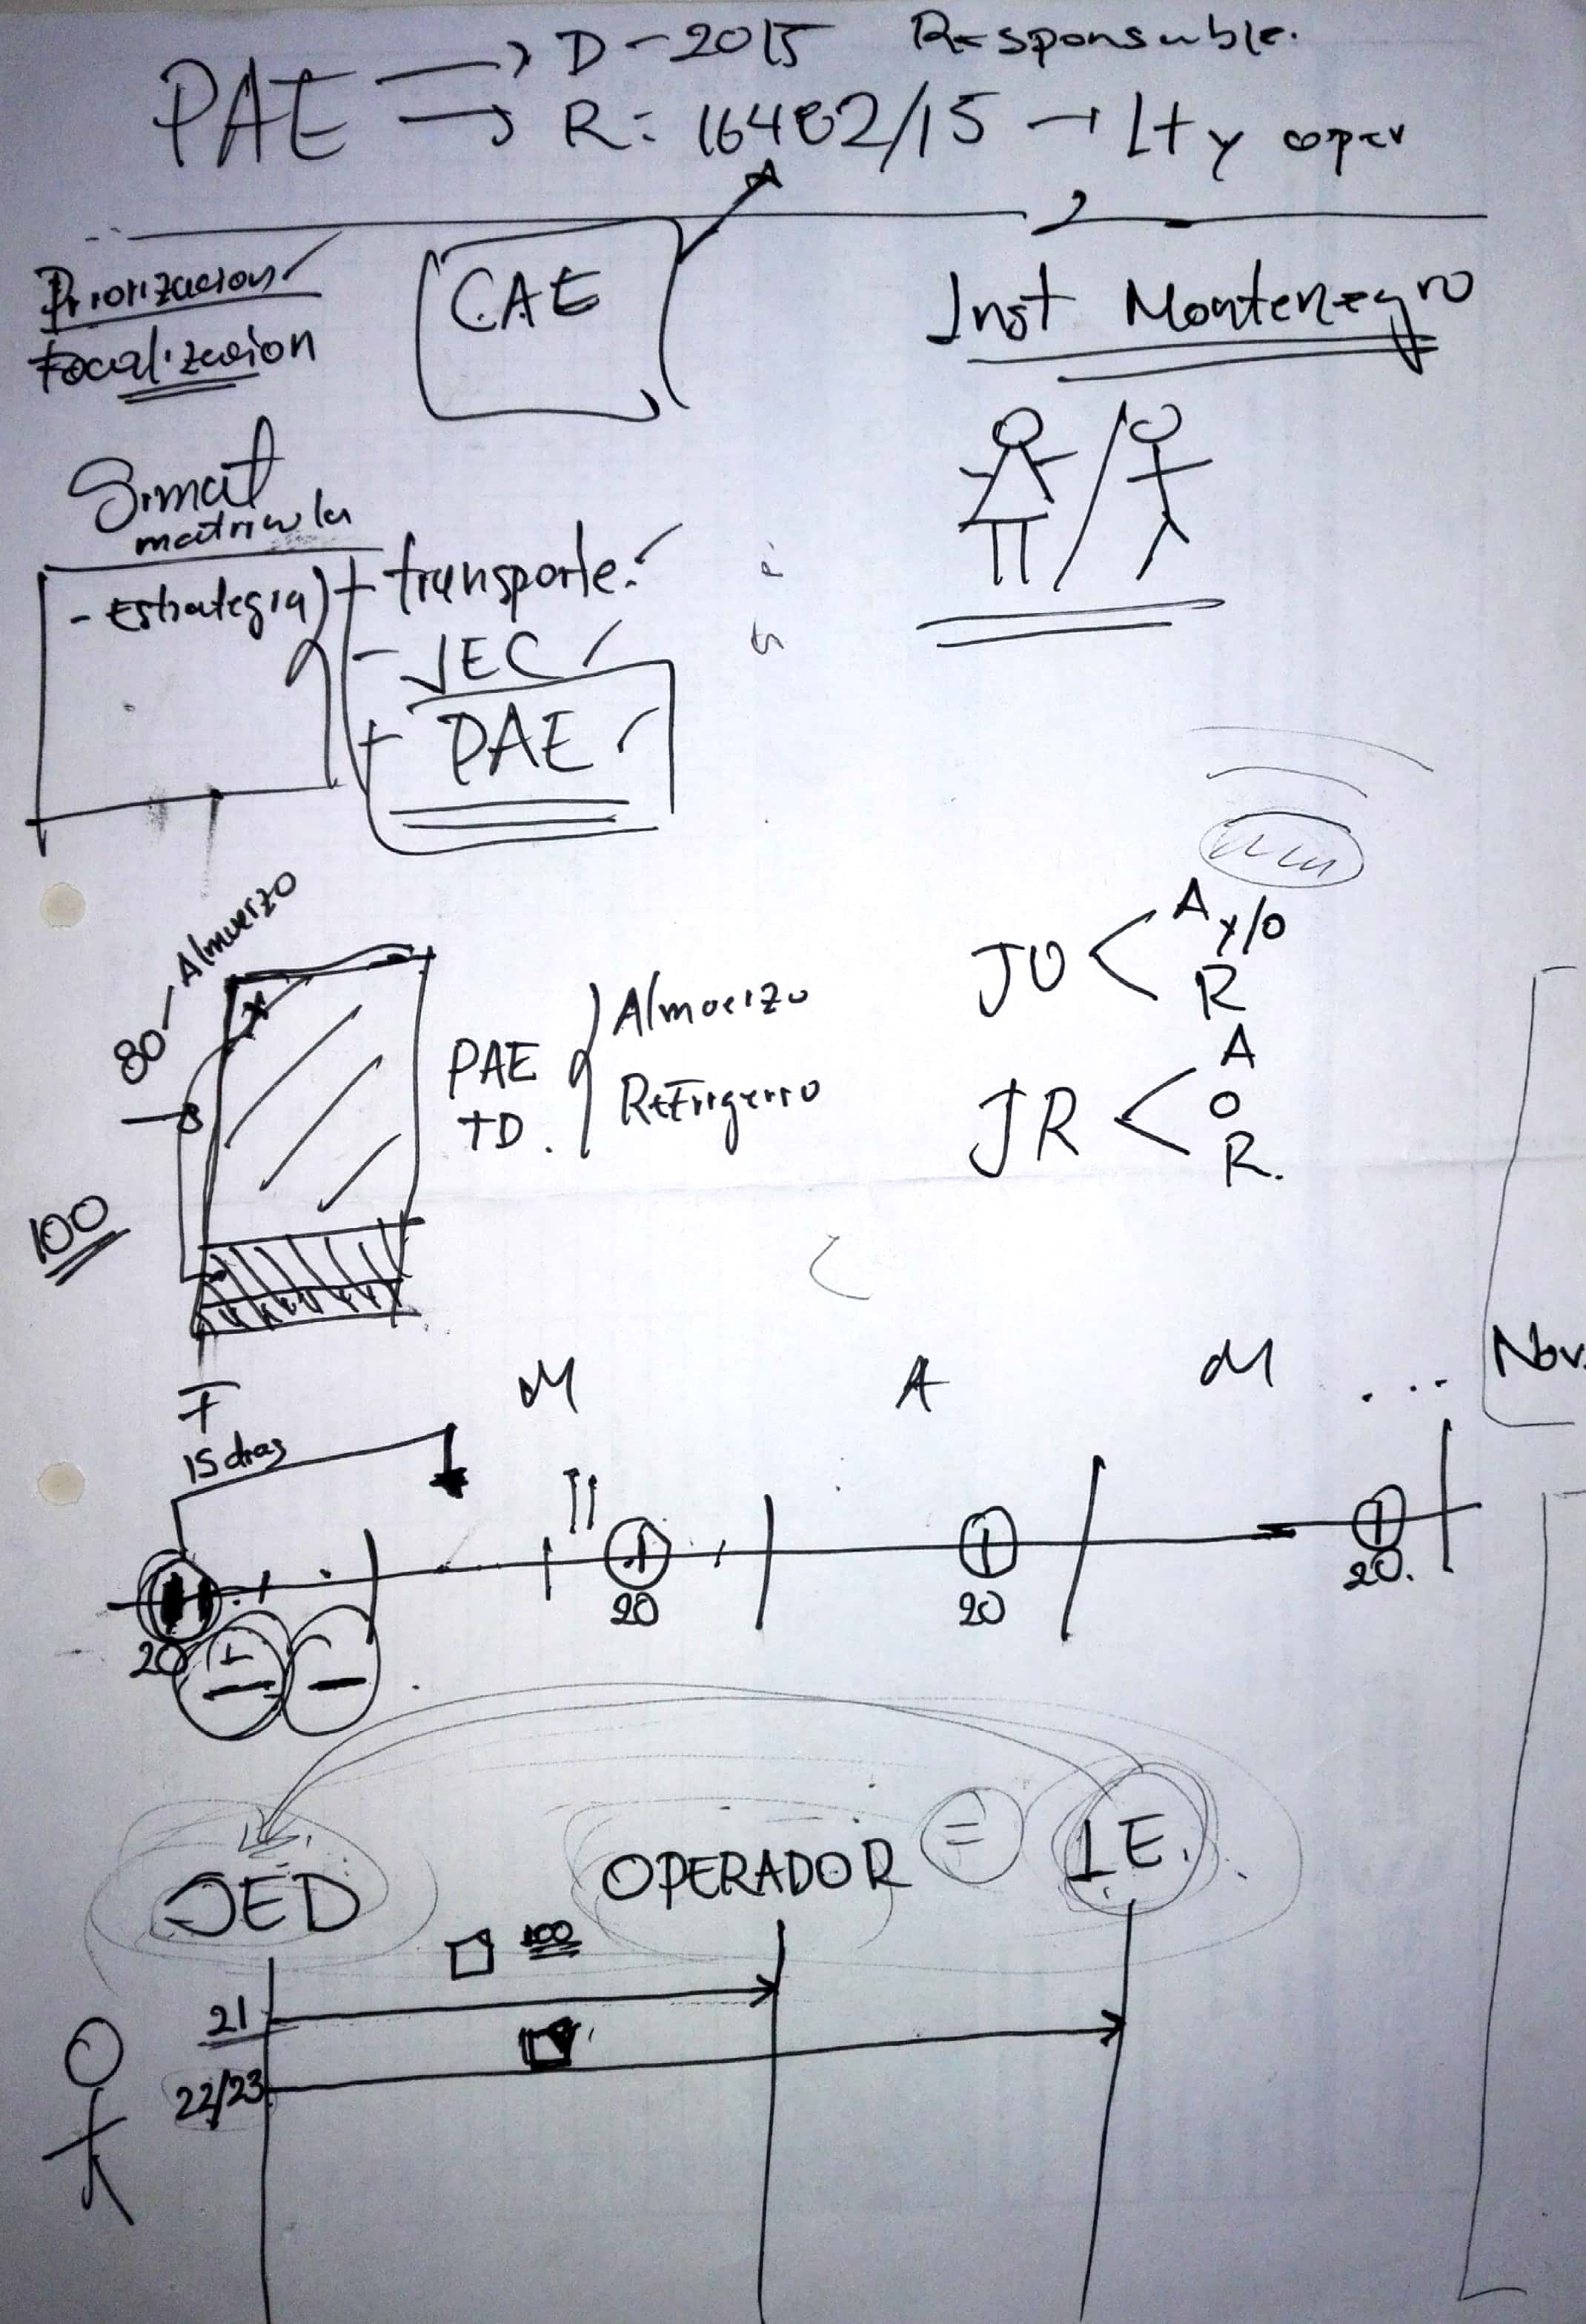 PAE → D - 2015 Responsable.
→ R: 16482/15 → Lt y oper
Priorizacion ✓
Focalizacion
CAE
Inst Montenegro
Simat
matricula
- Estrategia
+ transporte. ✓
- JEC ✓
+ PAE ✓
80 - Almuerzo
100
PAE
TD.
Almuerzo
Refrigerio
JU < A y/o R
JR < A o R.
F M A M ... Nov.
15 dias
20 20 20 20.
JED OPERADOR = I.E.
100
21
22/23